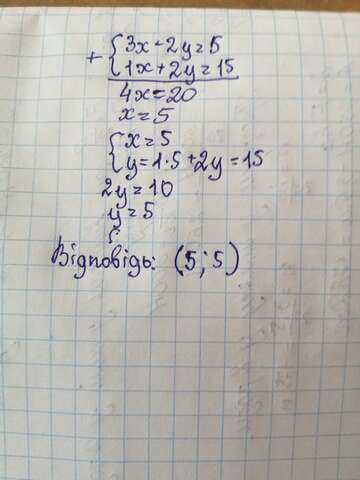 + { 3x - 2y = 5
{ 1x + 2y = 15
4x = 20
x = 5
{ x = 5
{ y = 1·5 + 2y = 15
2y = 10
y = 5
{
Відповідь: (5; 5)